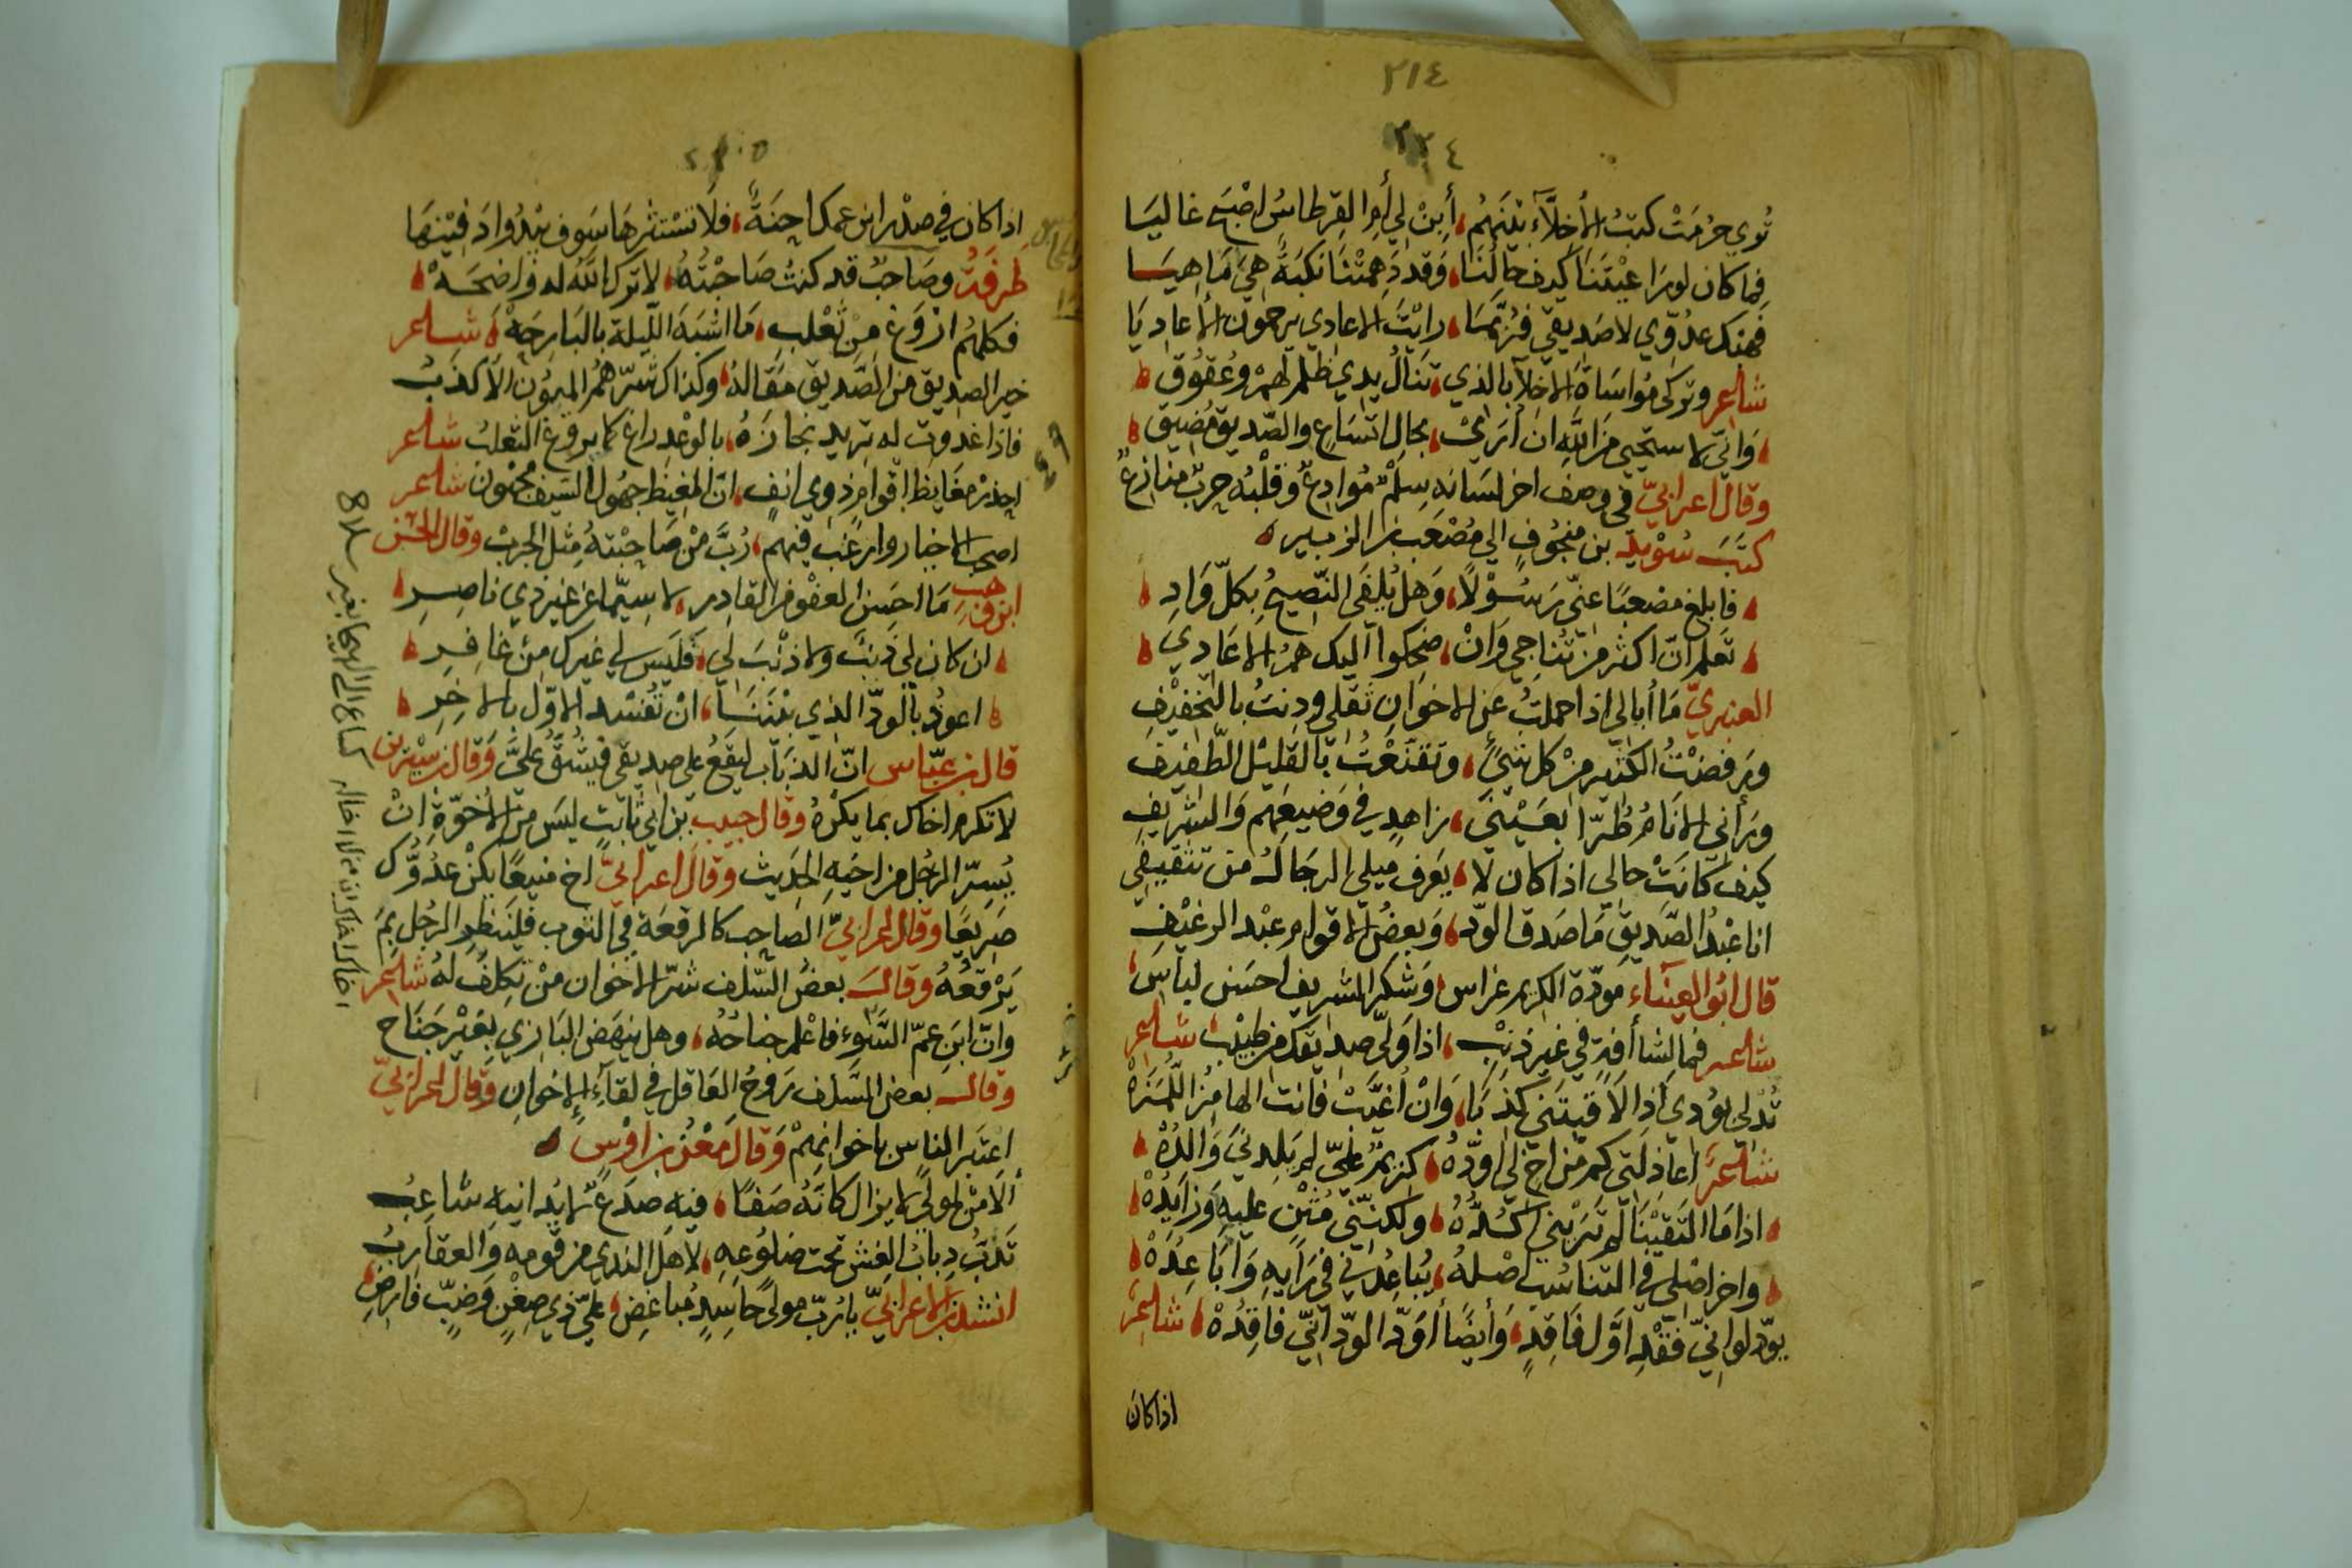 ٢١٤
٢٢٤
تُوي حُرمَتْ كتبُ الأخلّآءِ بَينَهُم، أَبِنْ لِي أَمِ القِرطاسُ اصْبَحَ غاليَا
فما كان لو رَاعيْتَنَا كيف حالُنَا، وَقد دَهِمَتْنَا نكبَةٌ هِيَ مَا هِيَا
فَهبْكَ عدُوّي لا صَديقي فرُبَّمَا، رايْتَ الاعادي يرحمون الأعادِيَا
شاعر وتركى مُواسَاةَ الاخِلّآ بالذي، تنَالُ يدي ظلمٌ لهمْ وعُقُوق
وَانّي لاستحيي مِنَ اللَّهِ ان أُرَى، بحال اتّسَاعٍ والصّديق مُضِيق
وقال اعرابيّ في وصف اخر لسَانه سِلْمٌ مُوادِعٌ وَقلْبُه حربٌ منازعٌ
كتَبَ سُوَيد بن منجُوفٍ الي مُصْعَب بن الزبير
فابلغ مصْعبًا عنّي رَسُوْلاً، وَهل يُلْفَى النّصِيحُ بكلّ وَادِ
تَعلم انّ اكثر مَن تُناجي وَانْ، ضحِكوا اليك هُمُ الاعَادي
العنبريّ مَا أُبالي اذا حملتُ عن الاخوانِ ثقلي ودِنتُ بالتَّخفيْفِ
ورَفضْتُ الكثير مِنْ كل شيْءٍ، وتقنّعْتُ بالقليْل الطّفيْف
ورَأني الانَامُ طُرّا بعَيْنَيْ، زاهدٍ في وَضيعَهِم وَالشريفِ
كيفَ كَانَتْ حالي اذا كان لا، يَعرف ميلي الرجَالُ من تثقيفي
انا عَبْدُ الصَّديقِ مَا صَدقَ الودّ، وَبعضُ الاقوام عبْد الرغيْفِ
قال ابُو العينَاء مَودّة الكريم غراس وَشكر الشريف احسَن لبَاسٍ
شاعر فما لِشاأفةٍ في غير ذنْبٍ، اذا وَلّى صديقك من طبيْب شاعر
تُدْلي بوُدي اذا لاَقيتَني كذِبَا، وَانْ أُغيَّبْ فانت الهامِزُ اللُّمَزَهْ
شاعر اعاذلتي كم من اخٍ لي اودّهُ، كريمٌ عليّ لم يَلِدني وَالدُهْ
اذا مَا التَقيْنَا لم تَرَيْني اكُدُّهُ، ولكنّني مُثْنٍ عليه وَزايدُهْ
واخر اصْلي في التناسُب اصْلهُ، يُباعِدُني في رَأيِه وَأبَاعِدُهْ
يودّ لو انّي فَقْدِ اوَّل فَاقدٍ، وَأيضًا أَوَدّ الودّ أنّي فاقِدُهْ شاعر
اذا كان
اذا كان في صدْر ابن عمك اِحنَةٌ، فلا تسْتثرْهَا سَوف يبْدُوا دَفيْنهَا
طرفَةُ وصَاحبٌ قد كنتُ صَاحبْتُهُ، لا ترك اللَّهُ له وَاضِحَهْ
فكلهُم ارْوَغ مِنْ ثعْلب، مَا اشْبَهَ اللّيلة بالبَارِحَهْ شاعر
خير الصديق من الصَّديق مَقَالهُ، وكذاك شرّهمُ المَيُونُ الأكذبُ
فاذا غدوت له تريد نجازَهُ، بالوعْد راغ كما يروغ الثعلبُ شاعر
احذرْ مغَايظ اقْوامٍ ذوي انفٍ، انّ المغيظ جهُول السّيف مجْنون شاعر
اصحب الاخيار وارغب فيهم، رُبَّ مَن صَاحبْتهُ مِثل الجربْ وقال الحسن
ابن وهب مَا احسَن العفْو من القادر، لا سِيّما عن غير ذي ناصِر
ان كان لي ذنبٌ ولا ذنْبَ لي، فليَس لي غيرك من غافر
اعوذ بالودّ الذي بيْننَا، انْ تُفسَد الاوّل بالاخِر
قال بن عبّاس انّ الذبَاب ليقعُ علي صديقي فيشُقُّ عليَّ وَقال بن سيْرين
لا تكرم اخاك بما يكْرهُ وقال حبيب بن ابي ثابتٍ ليسَ مِنَ الأخوّةِ انْ
يُسِرّ الرجُل من اخيهِ الحديث وقال اعرابيّ اخ منيعًا يكُنْ عدُوُّك
صَرِيعًا وقال اعرابيّ الصاحِب كالرقعَة في الثوب فليَنظرِ الرجُل بمَ
يَرْقعُهُ وقال بعضُ السّلف شرّ الاخوان مَنْ تكلفُ لهُ شاعر
وانّ ابن عمّ السَّوء فاعْلم جناحُهُ، وهل ينهَض البَازي بغَيْر جَنَاح
وقال بعض السَّلف رَوحُ العَاقل في لقآء الاخوانِ وقال اعرابيّ
اعتَبر الناسَ باخوانهمْ وَقال مَعْن بن اوْسٍ
أَلاَ مَنْ لموليً لا يزال كانّهُ صَفًا، فيهِ صدعٌ لا يُدانيهِ شاعِبُ
تدبُّ دبابُ الغِشّ تحت ضلُوعِهِ، لاهل الندي من قومه وَالعقاربُ
انشد بن الاعرابيّ يا رُبّ موليً حَاسِدٍ مُباغِض، عليّ ذي ضِغْنٍ وَضبٍّ فارضِ
اخاك اخاك ان من لا اخا له كساع الى الهيجا بغير سلاح